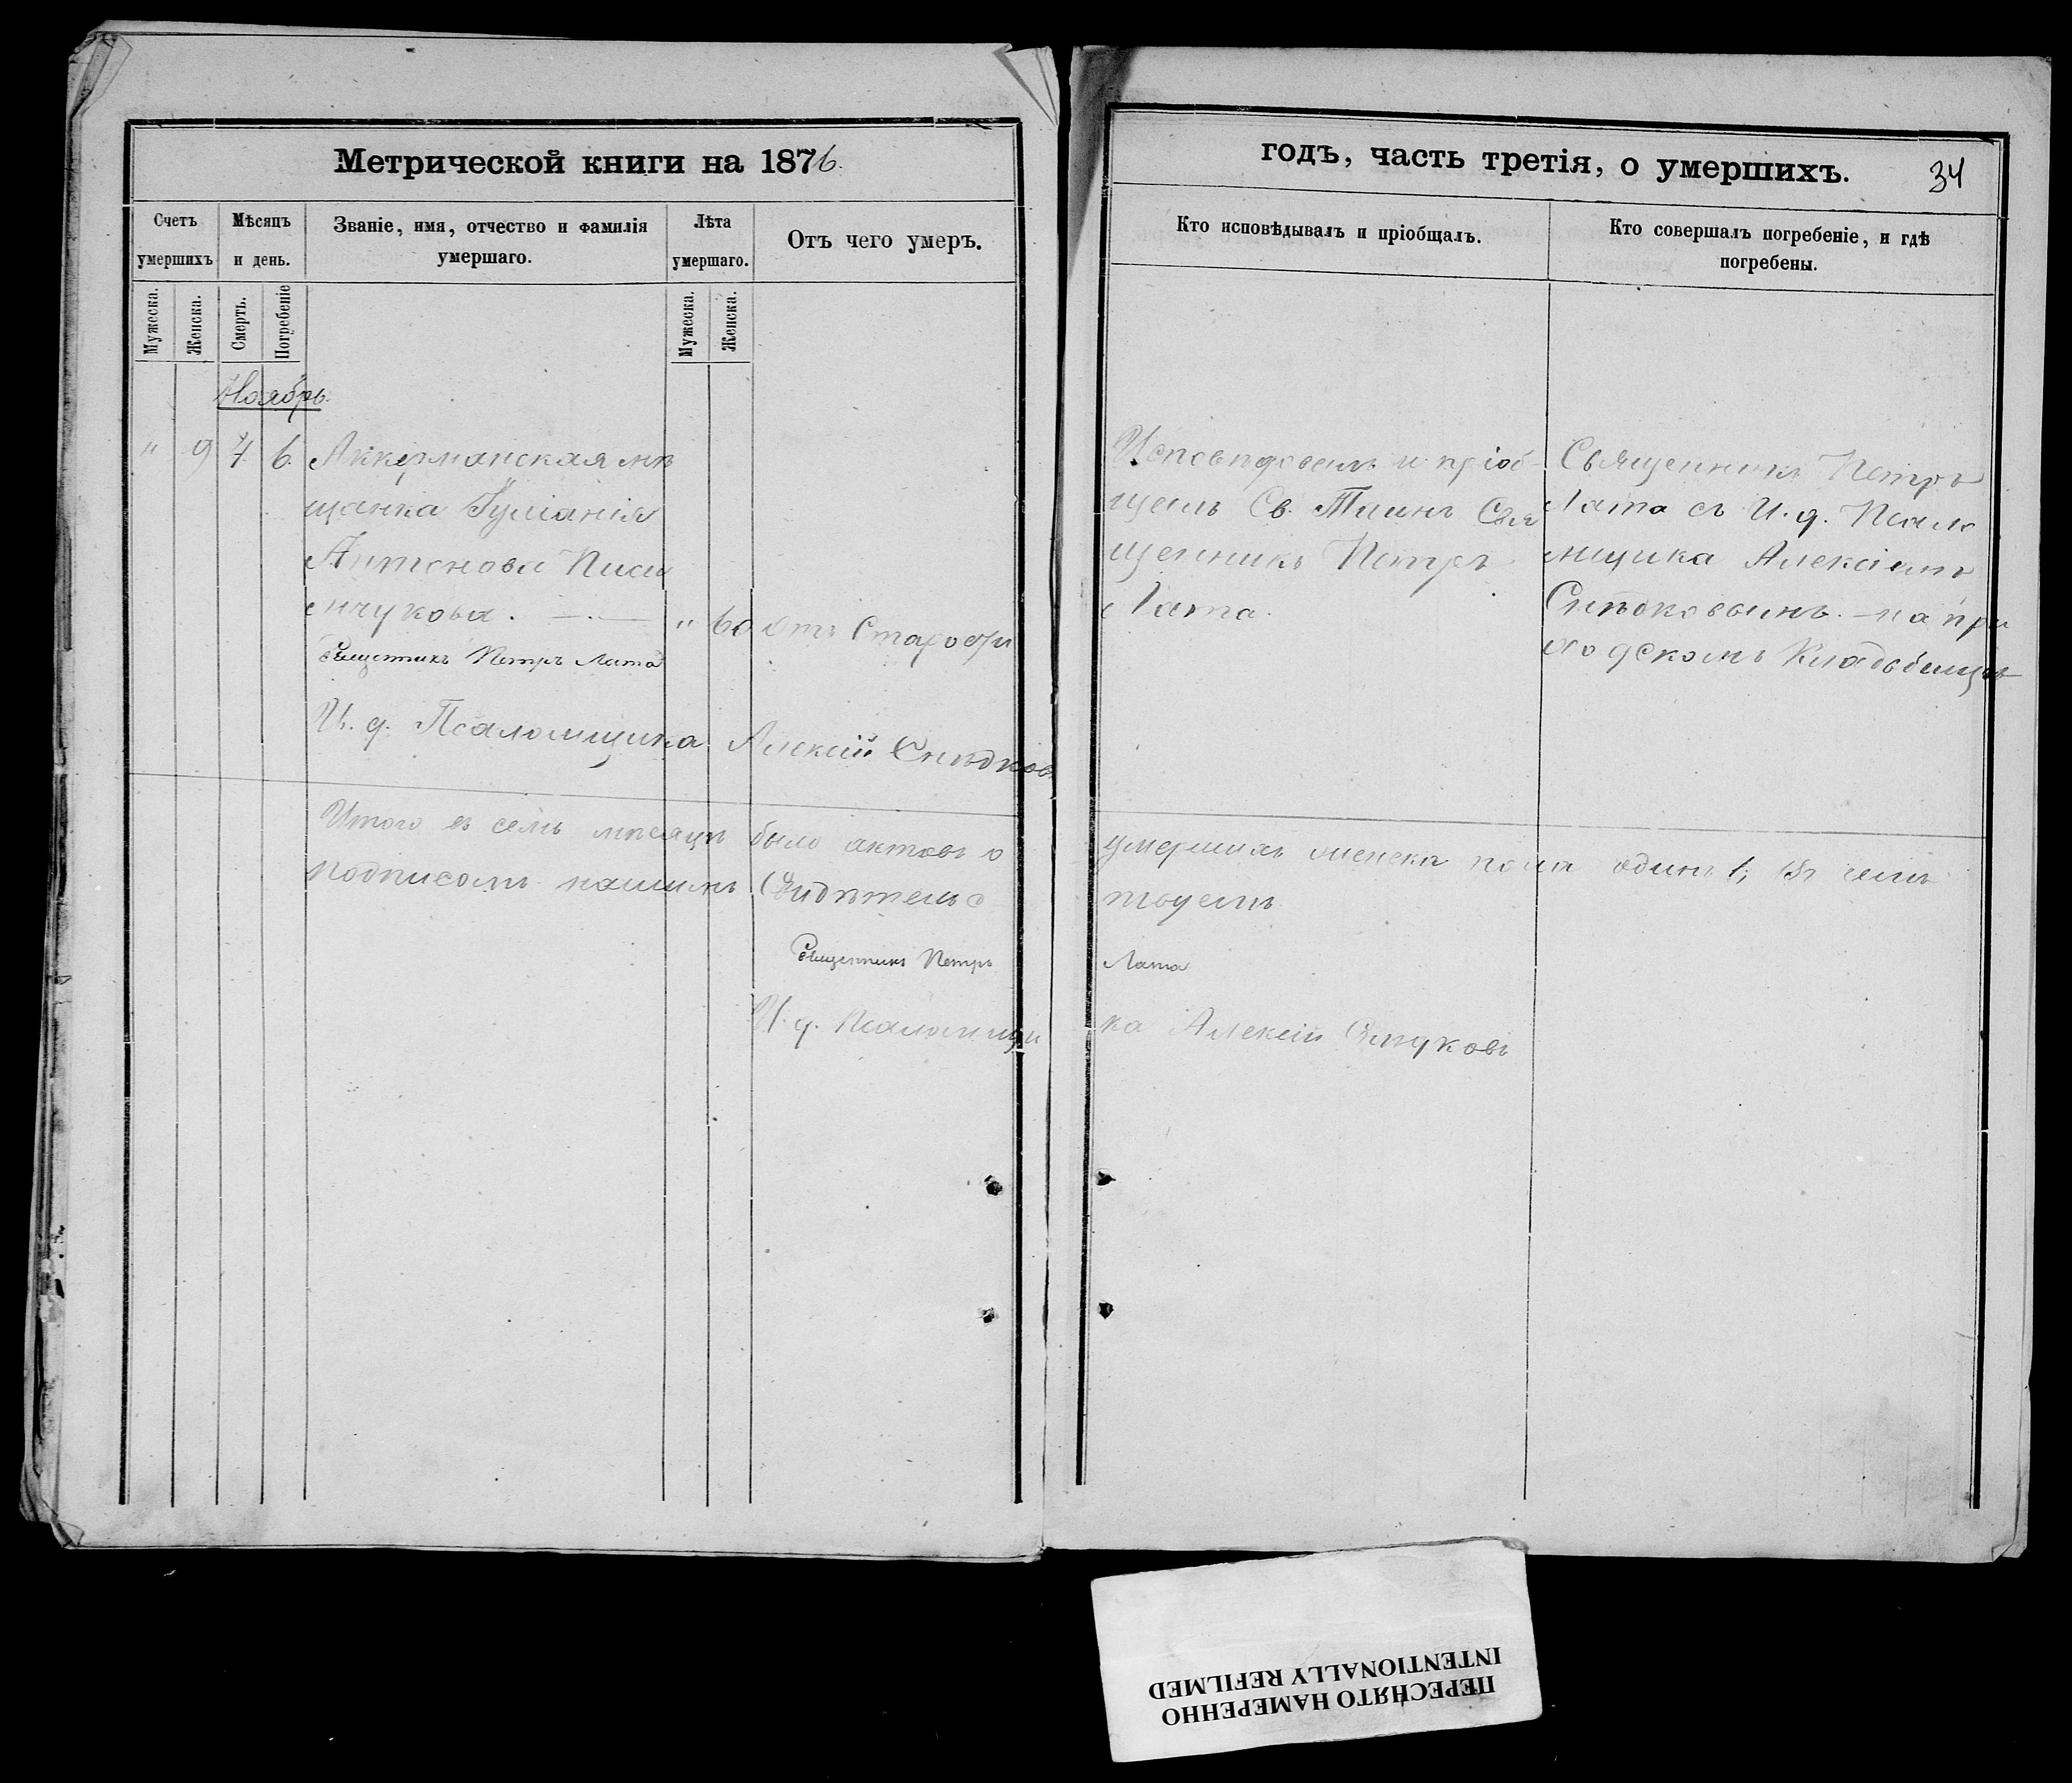 Метрической книги на 1876.
Счетъ умершихъ
Мѣсяцъ и день.
Званіе, имя, отчество и фамилія умершаго.
Лѣта умершаго.
Отъ чего умеръ.
Мужеска.
Женска.
Смерть.
Погребеніе
Мужеска.
Женска.
Ноябрь.
" 9 4. 6. Аккерманская мѣ
щанка Іуліанія
Антонова Писа
нчукова. " 60 отъ Старости
Священникъ Петръ Лата
И. д. Псаломщика Алексій
Итого въ семъ мѣсяцѣ было актовъ о
подписомъ нашимъ Свидѣтельс
Священникъ Петръ
И. д. Псаломщи
годъ, часть третія, о умершихъ.
34
Кто исповѣдывалъ и пріобщалъ.
Кто совершалъ погребеніе, и гдѣ погребены.
Исповѣдовалъ и пріоб-
щалъ Св. Таинъ Свя
щенникъ Петръ
Лата.
Священникъ Петръ
Лата съ И. д. Псало
мщика Алексіемъ
на при
ходскомъ Кладбищѣ
умершихъ женска пола одинъ 1; Въ чемъ
твуемъ
Лата
ка Алексій
ПЕРЕСНЯТО НАМЕРЕННО
INTENTIONALLY REFILMED